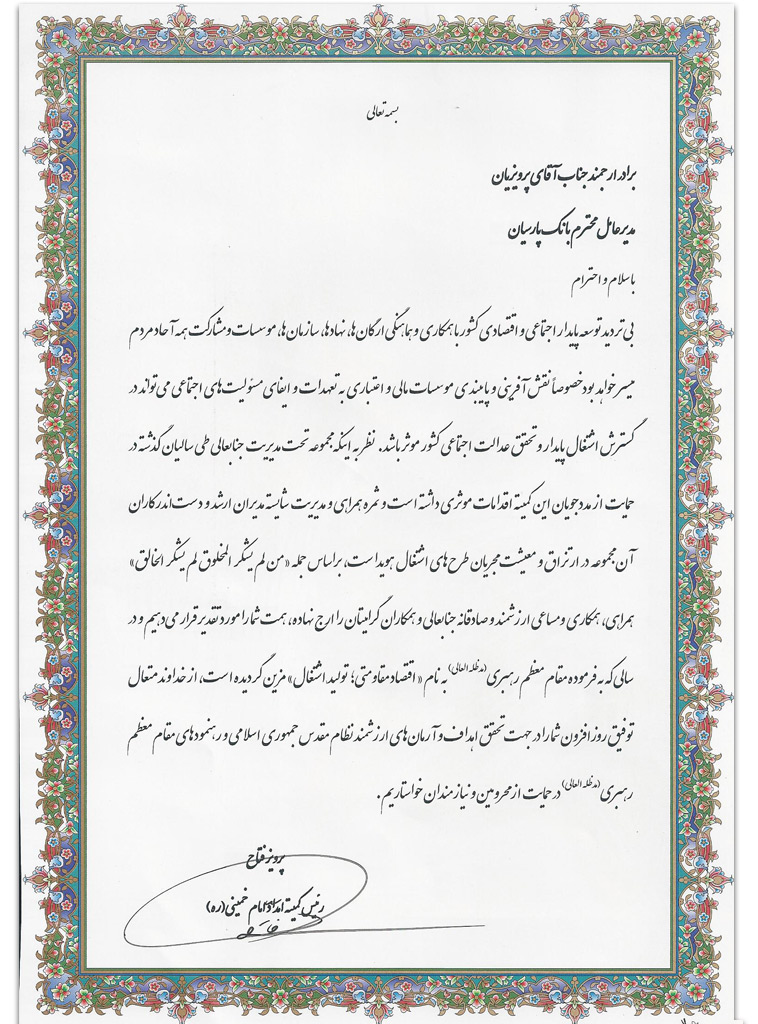 بسمه تعالی
برادر ارجمند جناب آقای پرویزیان
مدیرعامل محترم بانک پارسیان
باسلام و احترام
بی تردید توسعه پایدار اجتماعی و اقتصادی کشور با همکاری و هماهنگی ارگان ها، نهادها، سازمان ها، موسسات و مشارکت همه آحاد مردم
میسر خواهد بود خصوصاً نقش آفرینی و پایبندی موسسات مالی و اعتباری به تعهدات و ایفای مسئولیت های اجتماعی می تواند در
گسترش اشتغال پایدار و تحقق عدالت اجتماعی کشور موثر باشد. نظر به اینکه مجموعه تحت مدیریت جنابعالی طی سالیان گذشته در
حمایت از مددجویان این کمیته اقدامات موثری داشته است و ثمره همراهی و مدیریت شایسته مدیران ارشد و دست اندرکاران
آن مجموعه در ارتزاق و معیشت مجریان طرح های اشتغال هویدا است، براساس جمله «من لم یشکر المخلوق لم یشکر الخالق»
همراهی، همکاری و مساعی ارزشمند و صادقانه جنابعالی و همکاران گرامیتان را ارج نهاده، همت شما را مورد تقدیر قرار می دهیم و در
سالی که به فرموده مقام معظم رهبری (مدظله العالی) به نام «اقتصاد مقاومتی؛ تولید اشتغال» مزین گردیده است، از خداوند متعال
توفیق روز افزون شما را در جهت تحقق اهداف و آرمان های ارزشمند نظام مقدس جمهوری اسلامی و رهنمودهای مقام معظم
رهبری (مدظله العالی) در حمایت از محرومین و نیازمندان خواستاریم.
پرویز فتاح
رئیس کمیته امداد امام خمینی (ره)